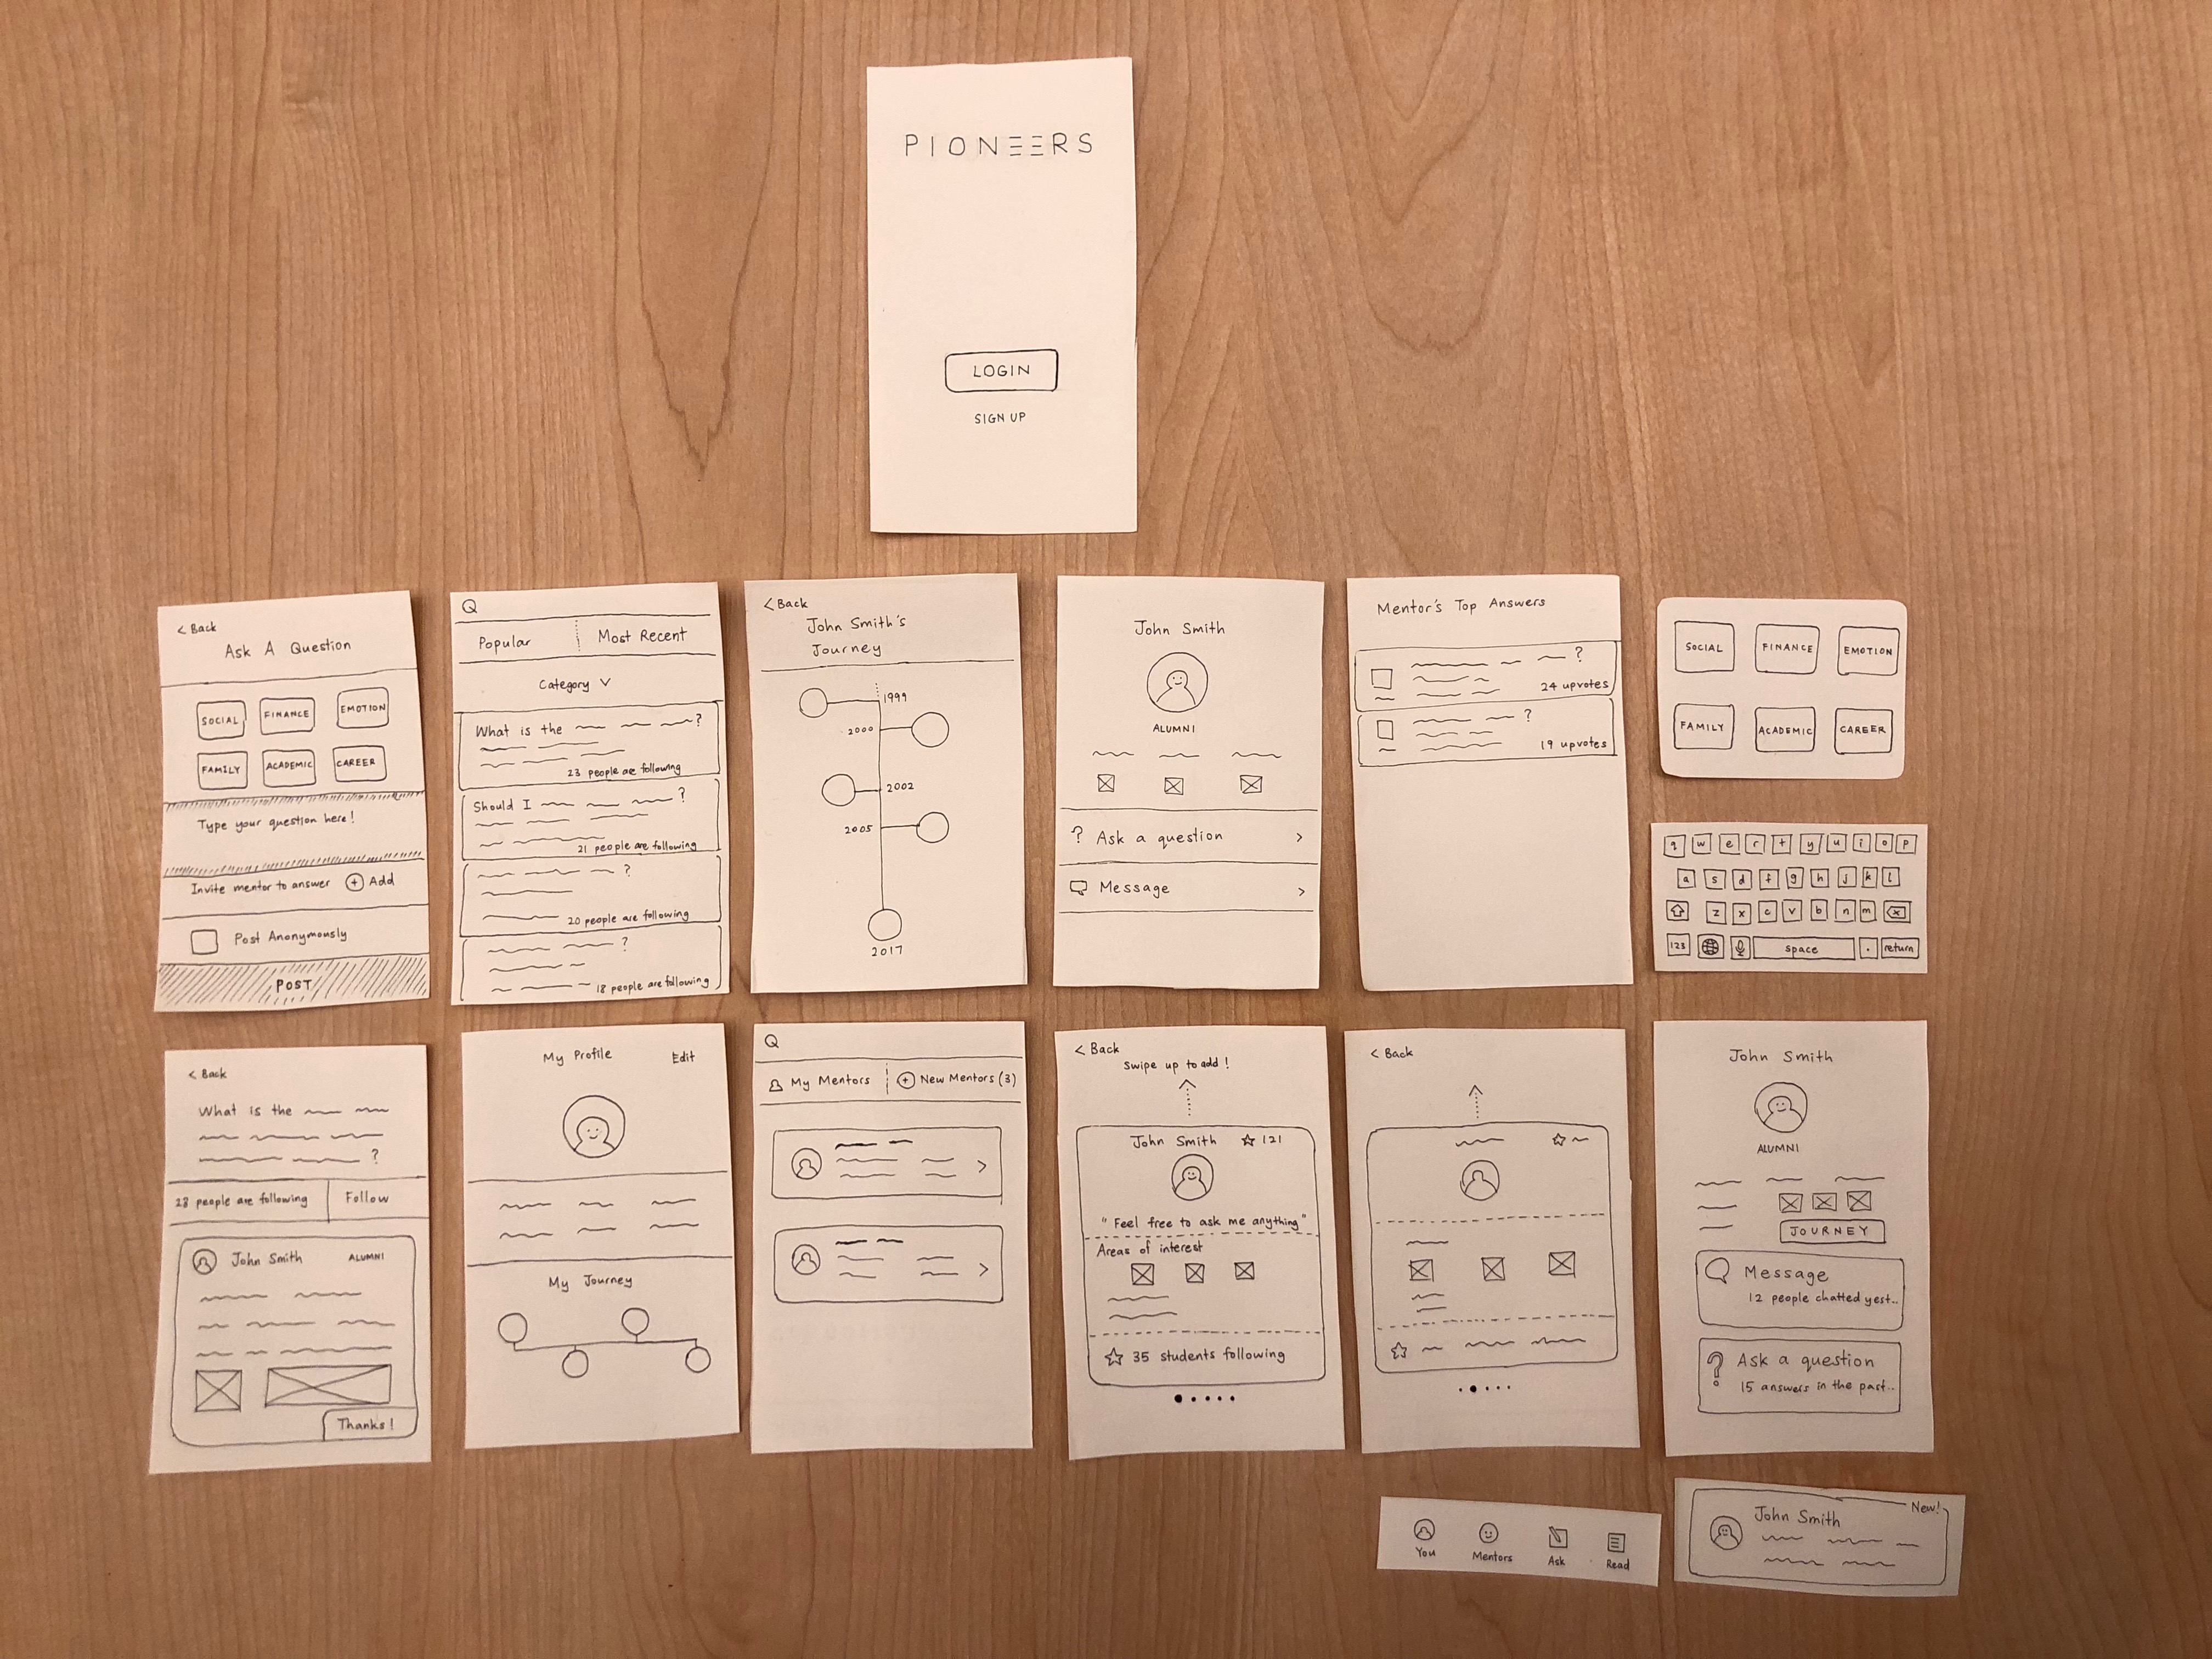 PIONEERS
LOGIN
SIGN UP
< Back
Ask A Question
SOCIAL FINANCE EMOTION
FAMILY ACADEMIC CAREER
Type your question here!
Invite mentor to answer + Add
Post Anonymously
POST
Popular Most Recent
Category
What is the ?
23 people are following
Should I ?
21 people are following
?
20 people are following
?
18 people are following
< Back
John Smith's
Journey
1999
2000
2002
2005
2017
John Smith
ALUMNI
? Ask a question >
Message >
Mentor's Top Answers
?
24 upvotes
?
19 upvotes
SOCIAL FINANCE EMOTION
FAMILY ACADEMIC CAREER
q w e r t y u i o p
a s d f g h j k l
z x c v b n m
123 space . return
< Back
What is the
?
23 people are following Follow
John Smith ALUMNI
Thanks!
My Profile Edit
My Journey
My Mentors + New Mentors (3)
>
>
< Back
Swipe up to add!
John Smith 121
"Feel free to ask me anything"
Areas of interest
35 students following
< Back
John Smith
ALUMNI
JOURNEY
Message
12 people chatted yest..
? Ask a question
15 answers in the past..
You Mentors Ask Read
New!
John Smith